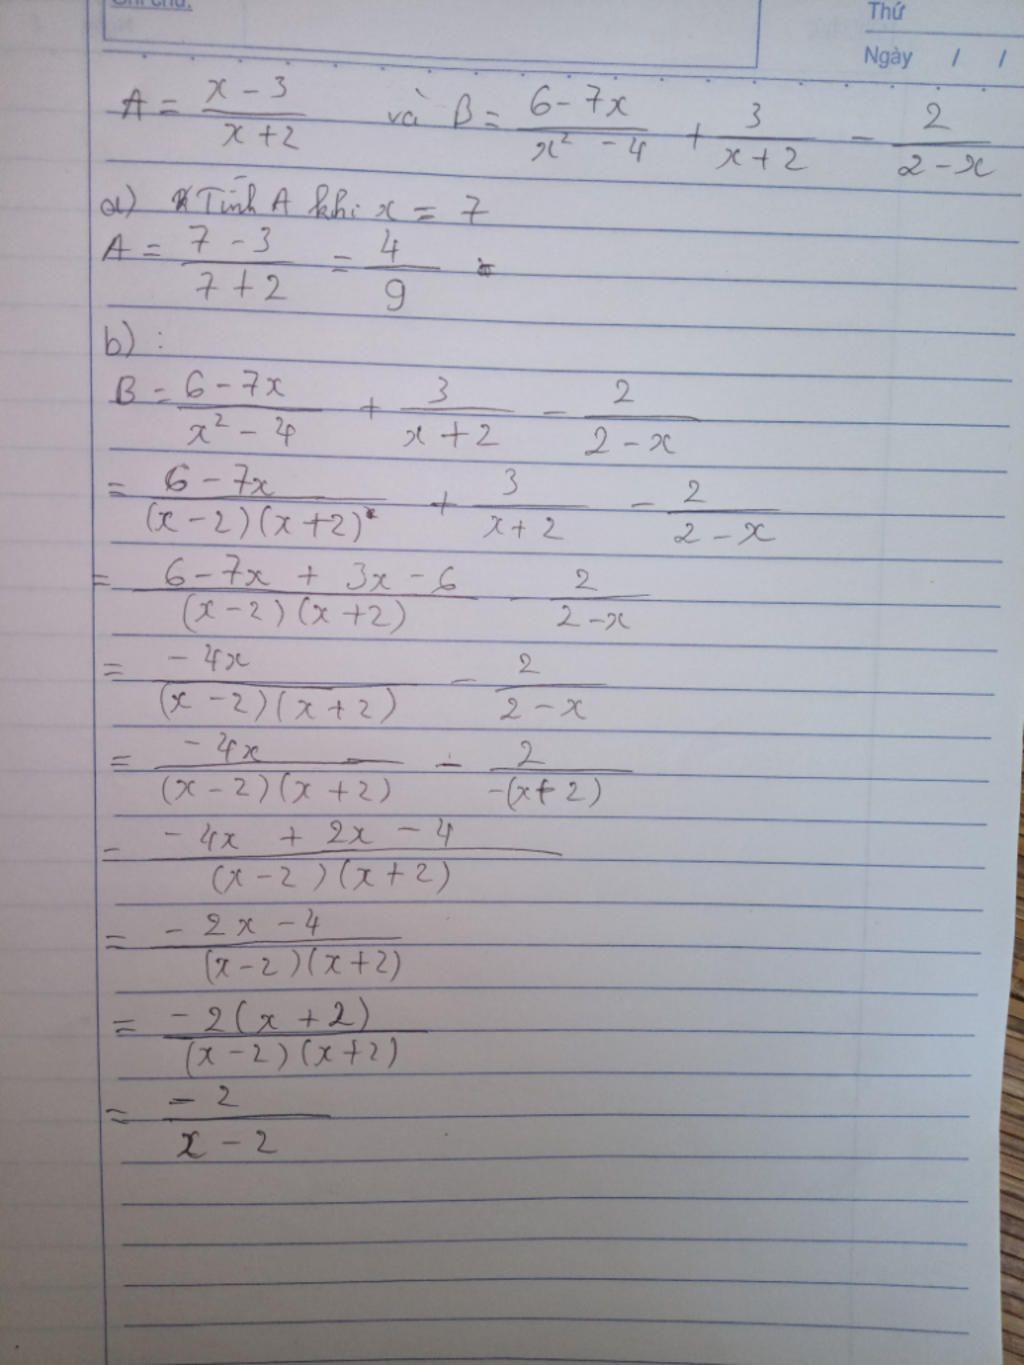 Ghi chú:
Thứ
Ngày / /
A = (x - 3)/(x + 2) và B = (6 - 7x)/(x² - 4) + 3/(x + 2) - 2/(2 - x)
a) Tính A khi x = 7
A = (7 - 3)/(7 + 2) = 4/9
b) :
B = (6 - 7x)/(x² - 4) + 3/(x + 2) - 2/(2 - x)
= (6 - 7x)/((x - 2)(x + 2)) + 3/(x + 2) - 2/(2 - x)
= (6 - 7x + 3x - 6)/((x - 2)(x + 2)) - 2/(2 - x)
= (- 4x)/((x - 2)(x + 2)) - 2/(2 - x)
= (- 4x)/((x - 2)(x + 2)) - 2/(-(x + 2))
= (- 4x + 2x - 4)/((x - 2)(x + 2))
= (- 2x - 4)/((x - 2)(x + 2))
= (- 2(x + 2))/((x - 2)(x + 2))
= (- 2)/(x - 2)